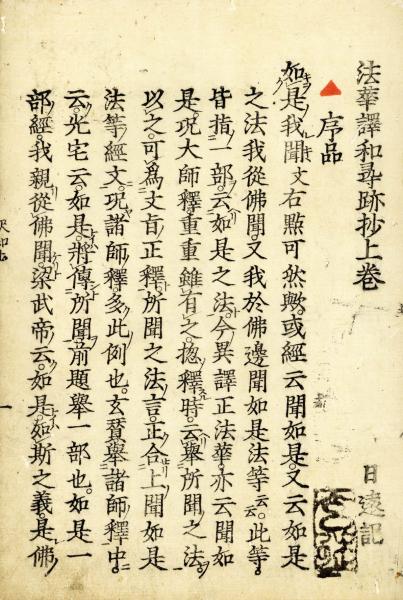 法華譯和尋跡抄上卷
日遠記
序品
如是我聞文右點可然歟或經云聞如是又云如是
之法我從佛聞又我於佛邊聞如是法等云云此等
皆指一部云如是之法今異譯正法華亦云聞如
是况大師釋重重雖有之惣釋時云舉所聞之法
以之可爲文旨正釋所聞之法言正合上聞如是
法等經文况諸師釋多此例也玄賛舉諸師釋中
云光宅云如是將傳所聞前題舉一部也如是一
部經我親從佛聞梁武帝云如是如斯之義是佛